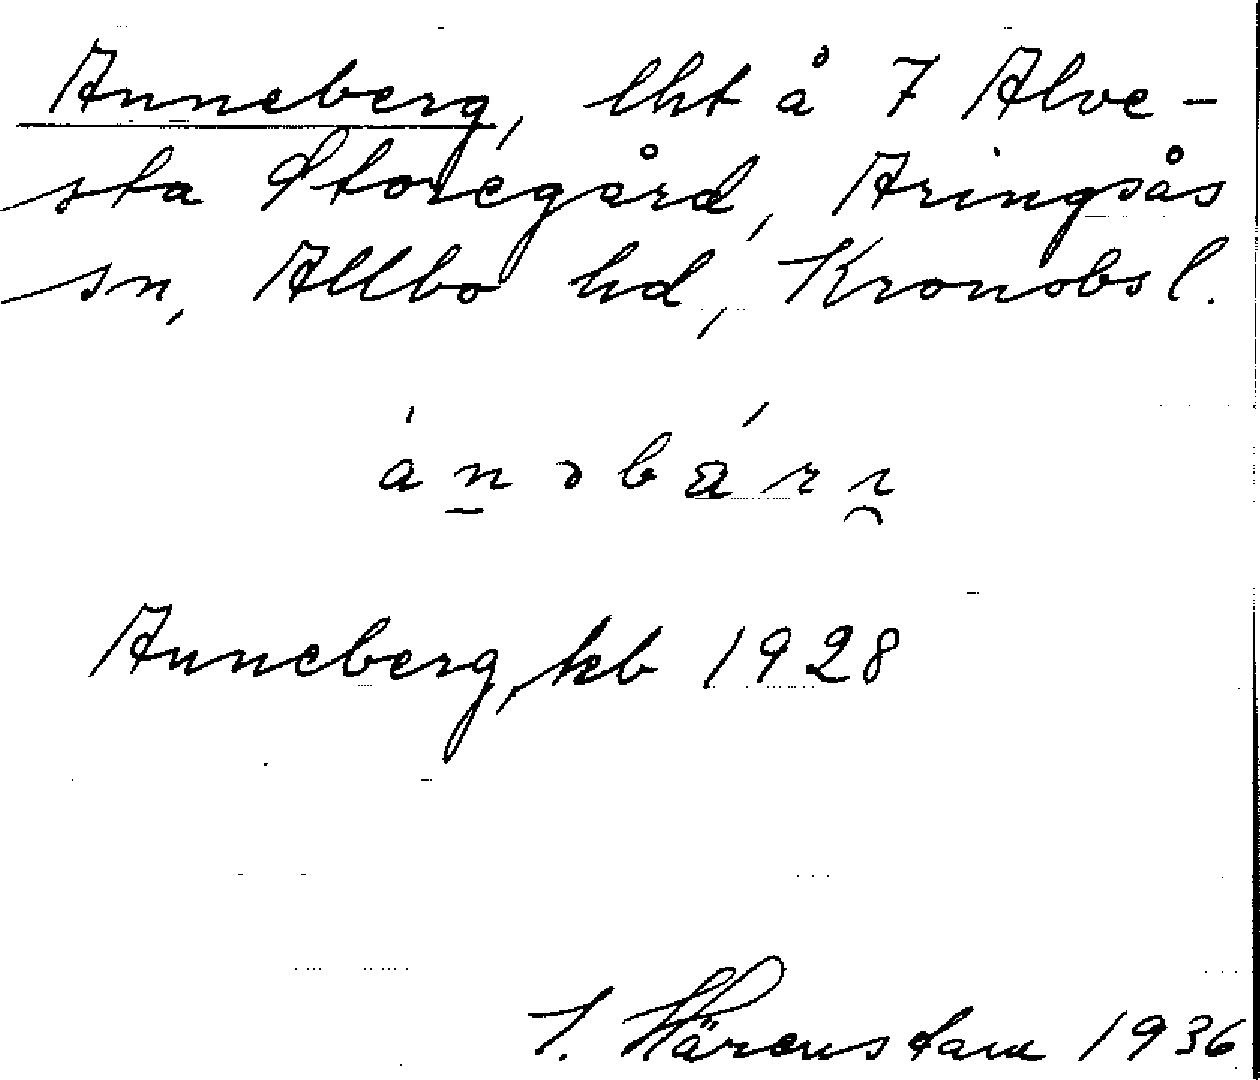 Anneberg, lht å 7 Alve-
sta Storegård, Aringsås
sn, Allbo hd, Kronobs l.
Anneberg, kb 1928
Härenstam 1936